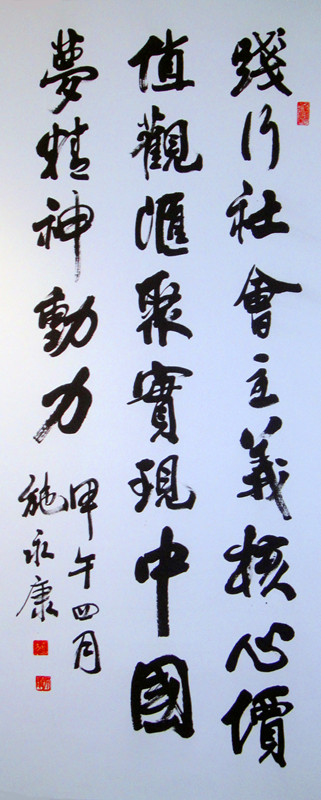 踐行社會主義核心價
值觀匯聚實現中國
夢精神動力
甲午四月
施永康